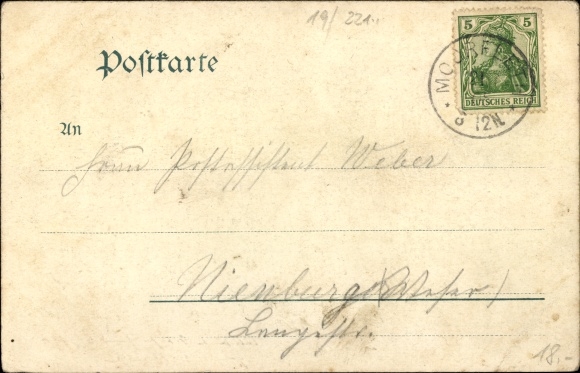 19/221..
Postkarte
5 5
DEUTSCHES REICH
12N.
An
Herrn Postassistent Weber
Nienburg (Weser)
Langestr.
18.-